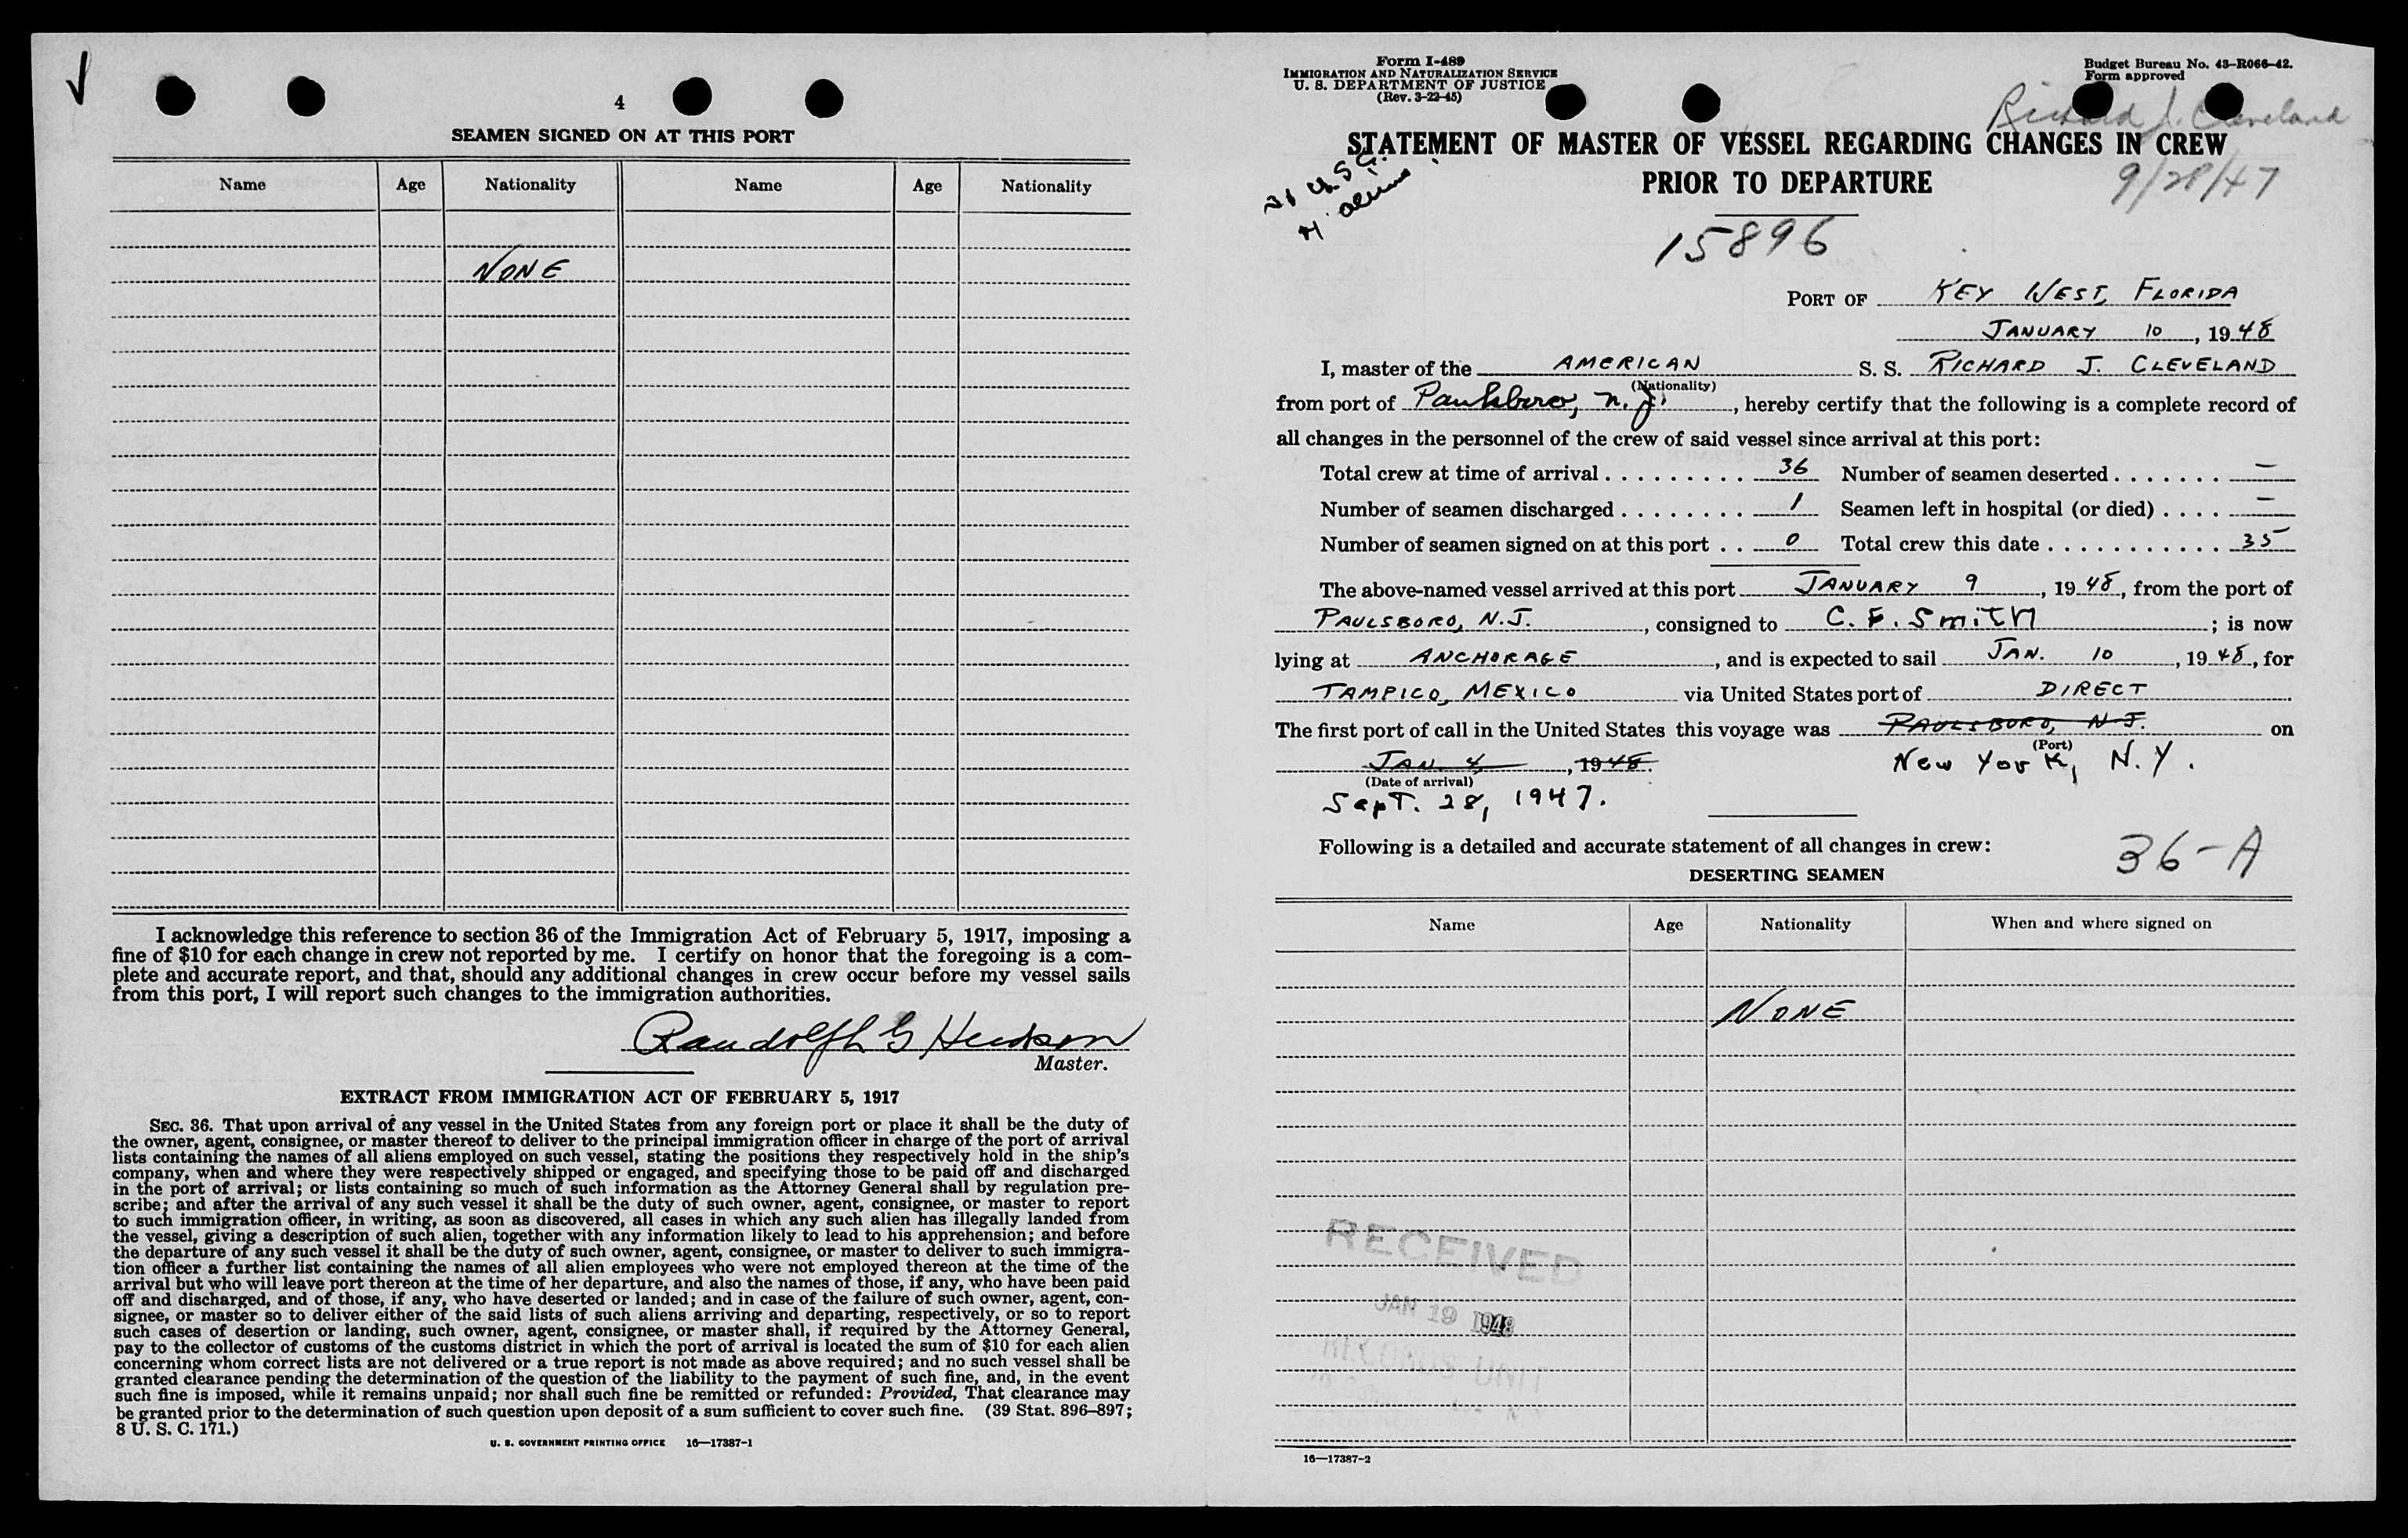 4
SEAMEN SIGNED ON AT THIS PORT
Name Age Nationality Name Age Nationality
NONE
I acknowledge this reference to section 36 of the Immigration Act of February 5, 1917, imposing a
fine of $10 for each change in crew not reported by me. I certify on honor that the foregoing is a com-
plete and accurate report, and that, should any additional changes in crew occur before my vessel sails
from this port, I will report such changes to the immigration authorities.
Randolph G Hudson
Master.
EXTRACT FROM IMMIGRATION ACT OF FEBRUARY 5, 1917
SEC. 36. That upon arrival of any vessel in the United States from any foreign port or place it shall be the duty of
the owner, agent, consignee, or master thereof to deliver to the principal immigration officer in charge of the port of arrival
lists containing the names of all aliens employed on such vessel, stating the positions they respectively hold in the ship's
company, when and where they were respectively shipped or engaged, and specifying those to be paid off and discharged
in the port of arrival; or lists containing so much of such information as the Attorney General shall by regulation pre-
scribe; and after the arrival of any such vessel it shall be the duty of such owner, agent, consignee, or master to report
to such immigration officer, in writing, as soon as discovered, all cases in which any such alien has illegally landed from
the vessel, giving a description of such alien, together with any information likely to lead to his apprehension; and before
the departure of any such vessel it shall be the duty of such owner, agent, consignee, or master to deliver to such immigra-
tion officer a further list containing the names of all alien employees who were not employed thereon at the time of the
arrival but who will leave port thereon at the time of her departure, and also the names of those, if any, who have been paid
off and discharged, and of those, if any, who have deserted or landed; and in case of the failure of such owner, agent, con-
signee, or master so to deliver either of the said lists of such aliens arriving and departing, respectively, or so to report
such cases of desertion or landing, such owner, agent, consignee, or master shall, if required by the Attorney General,
pay to the collector of customs of the customs district in which the port of arrival is located the sum of $10 for each alien
concerning whom correct lists are not delivered or a true report is not made as above required; and no such vessel shall be
granted clearance pending the determination of the question of the liability to the payment of such fine, and, in the event
such fine is imposed, while it remains unpaid; nor shall such fine be remitted or refunded: Provided, That clearance may
be granted prior to the determination of such question upon deposit of a sum sufficient to cover such fine. (39 Stat. 896–897;
8 U. S. C. 171.)
U. S. GOVERNMENT PRINTING OFFICE 16—17387-1
Form I-489
IMMIGRATION AND NATURALIZATION SERVICE
U. S. DEPARTMENT OF JUSTICE
(Rev. 3-22-45)
Budget Bureau No. 43-R066-42.
Form approved
Richard J. Cleveland
STATEMENT OF MASTER OF VESSEL REGARDING CHANGES IN CREW
PRIOR TO DEPARTURE
9/28/47
U.S.C.
aliens
15896
PORT OF KEY WEST, FLORIDA
JANUARY 10, 1948
I, master of the AMERICAN S. S. RICHARD J. CLEVELAND
(Nationality)
from port of Paulsboro, N.J., hereby certify that the following is a complete record of
all changes in the personnel of the crew of said vessel since arrival at this port:
Total crew at time of arrival . . . . . . . . . 36 Number of seamen deserted . . . . . . . —
Number of seamen discharged . . . . . . . . 1 Seamen left in hospital (or died) . . . . —
Number of seamen signed on at this port . . 0 Total crew this date . . . . . . . . . . . 35
The above-named vessel arrived at this port JANUARY 9, 1948, from the port of
PAULSBORO, N.J., consigned to C. E. SmiTH; is now
lying at ANCHORAGE, and is expected to sail JAN. 10, 1948, for
TAMPICO, MEXICO via United States port of DIRECT
The first port of call in the United States this voyage was PAULSBORO, N.J. on
(Port)
JAN 4, 1948. New York, N.Y.
(Date of arrival)
SepT. 28, 1947.
Following is a detailed and accurate statement of all changes in crew:
36-A
DESERTING SEAMEN
Name Age Nationality When and where signed on
NONE
RECEIVED
JAN 19 1948
RECORDS UNIT
16—17387-2